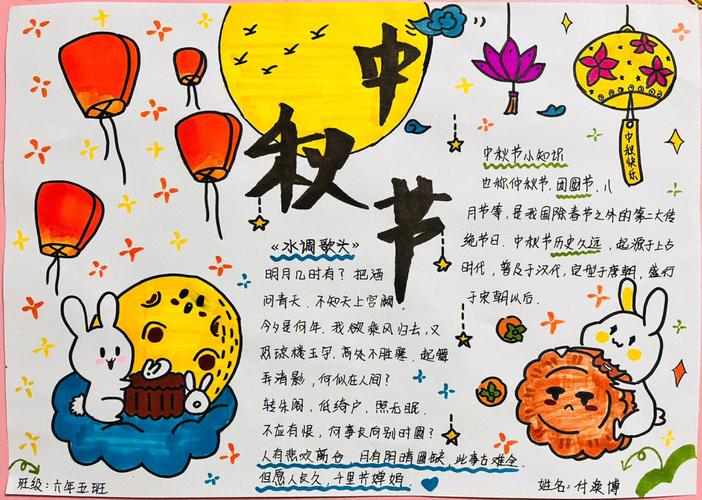 中秋节
中秋快乐
《水调歌头》
明月几时有？把酒
问青天．不知天上宫阙，
今夕是何年．我欲乘风归去，又
恐琼楼玉宇，高处不胜寒．起舞
弄清影，何似在人间？
转朱阁，低绮户，照无眠．
不应有恨，何事长向别时圆？
人有悲欢离合，月有阴晴圆缺，此事古难全．
但愿人长久，千里共婵娟．
中秋节小知识
也称仲秋节．团圆节、八
月节等，是我国除春节之外的第二大传
统节日．中秋节历史久远，起源于上古
时代，普及于汉代，定型于唐朝，盛行
于宋朝以后．
班级：六年五班
姓名：付焕博